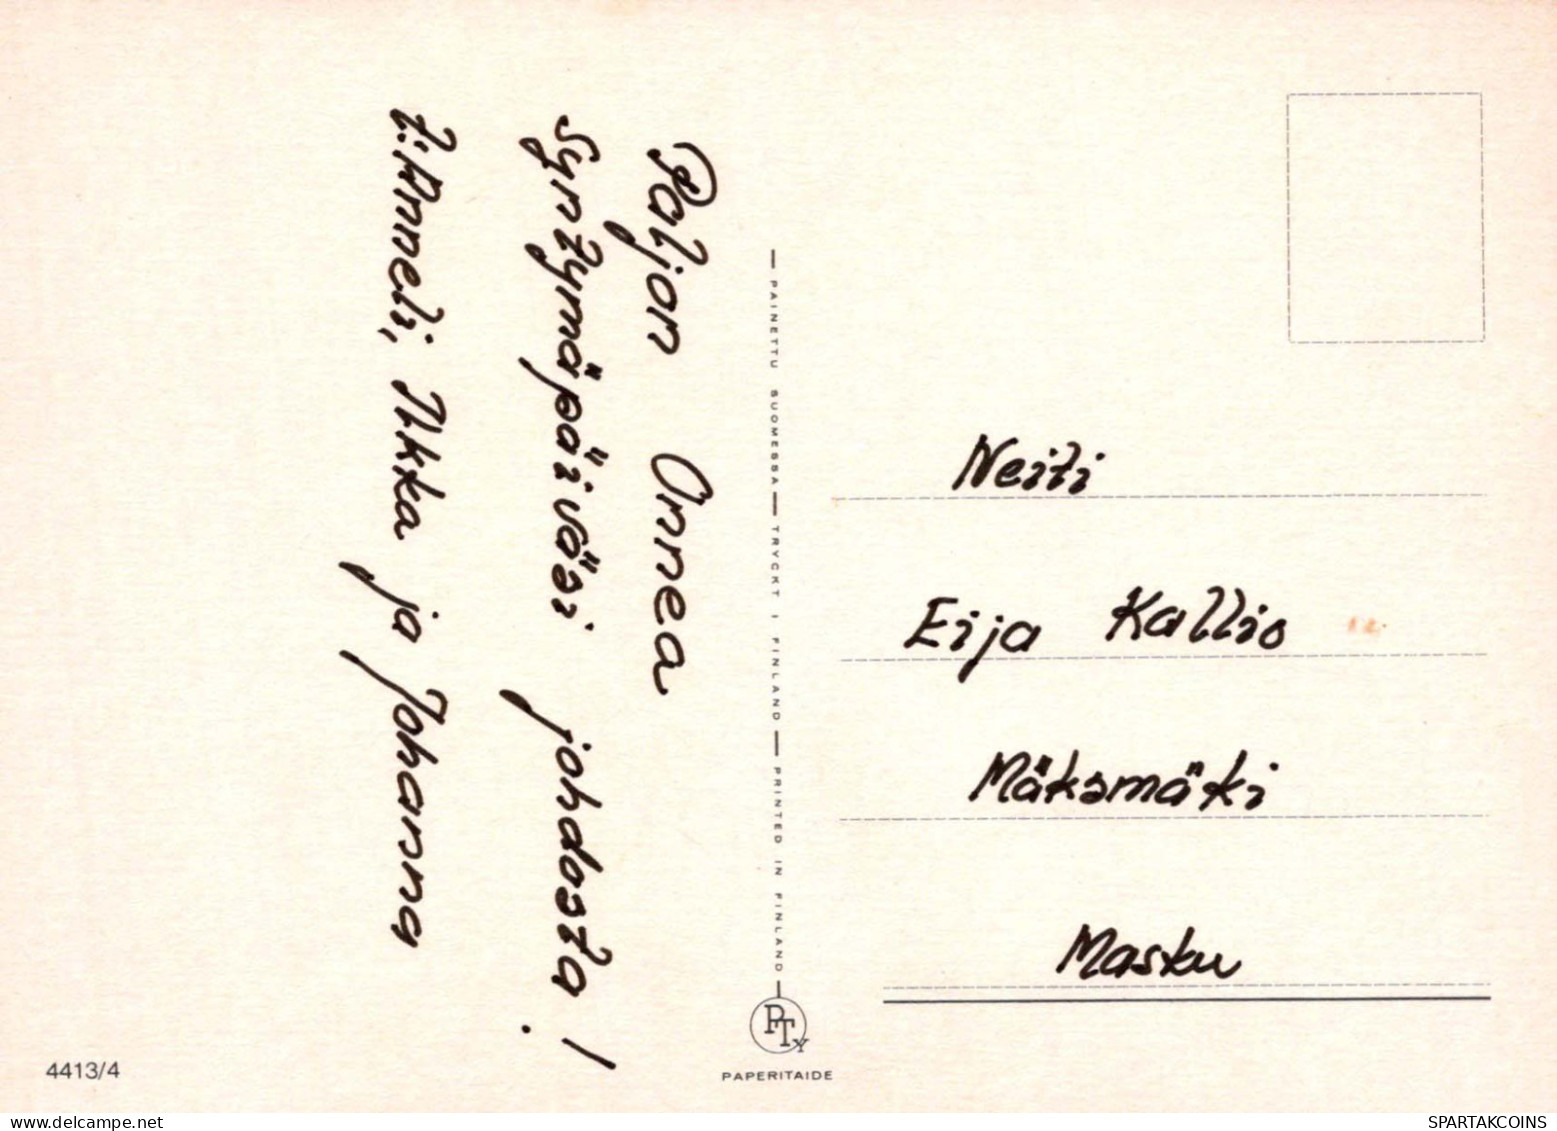 Paljon Onnea
syntymäpäiväsi johdosta!
t: Anneli, Ilkka ja Johanna
PAINETTU SUOMESSA — TRYCKT I FINLAND — PRINTED IN FINLAND
PTy
PAPERITAIDE
Neiti
Eija Kallio
Mäksmäki
Masku
4413/4
SPARTAKCOINS